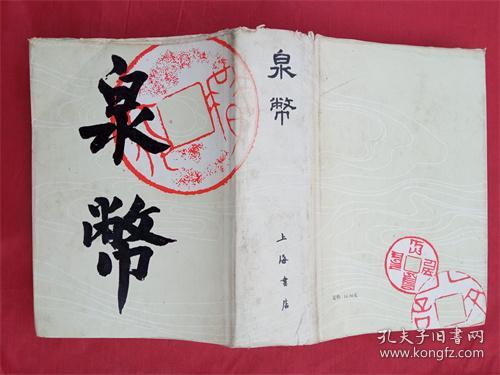 泉幣
泉幣
上海書店
孔夫子旧书网
www.kongfz.com